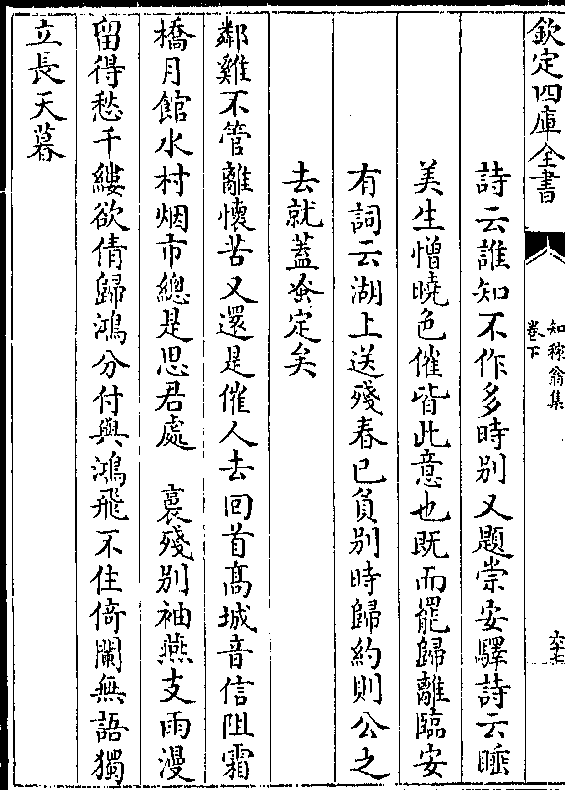 欽定四庫全書
知稼翁集
卷下
六十七
詩云誰知不作多時别又題崇安驛詩云睡
美生憎曉色催皆此意也既而罷歸離臨安
有詞云湖上送殘春已負别時歸約則公之
去就蓋蚤定矣
鄰雞不管離懷苦又還是催人去回首髙城音信阻霜
橋月館水村烟市總是思君處　裛殘别袖燕支雨漫
留得愁千縷欲倩歸鴻分付與鴻飛不住倚闌無語獨
立長天暮